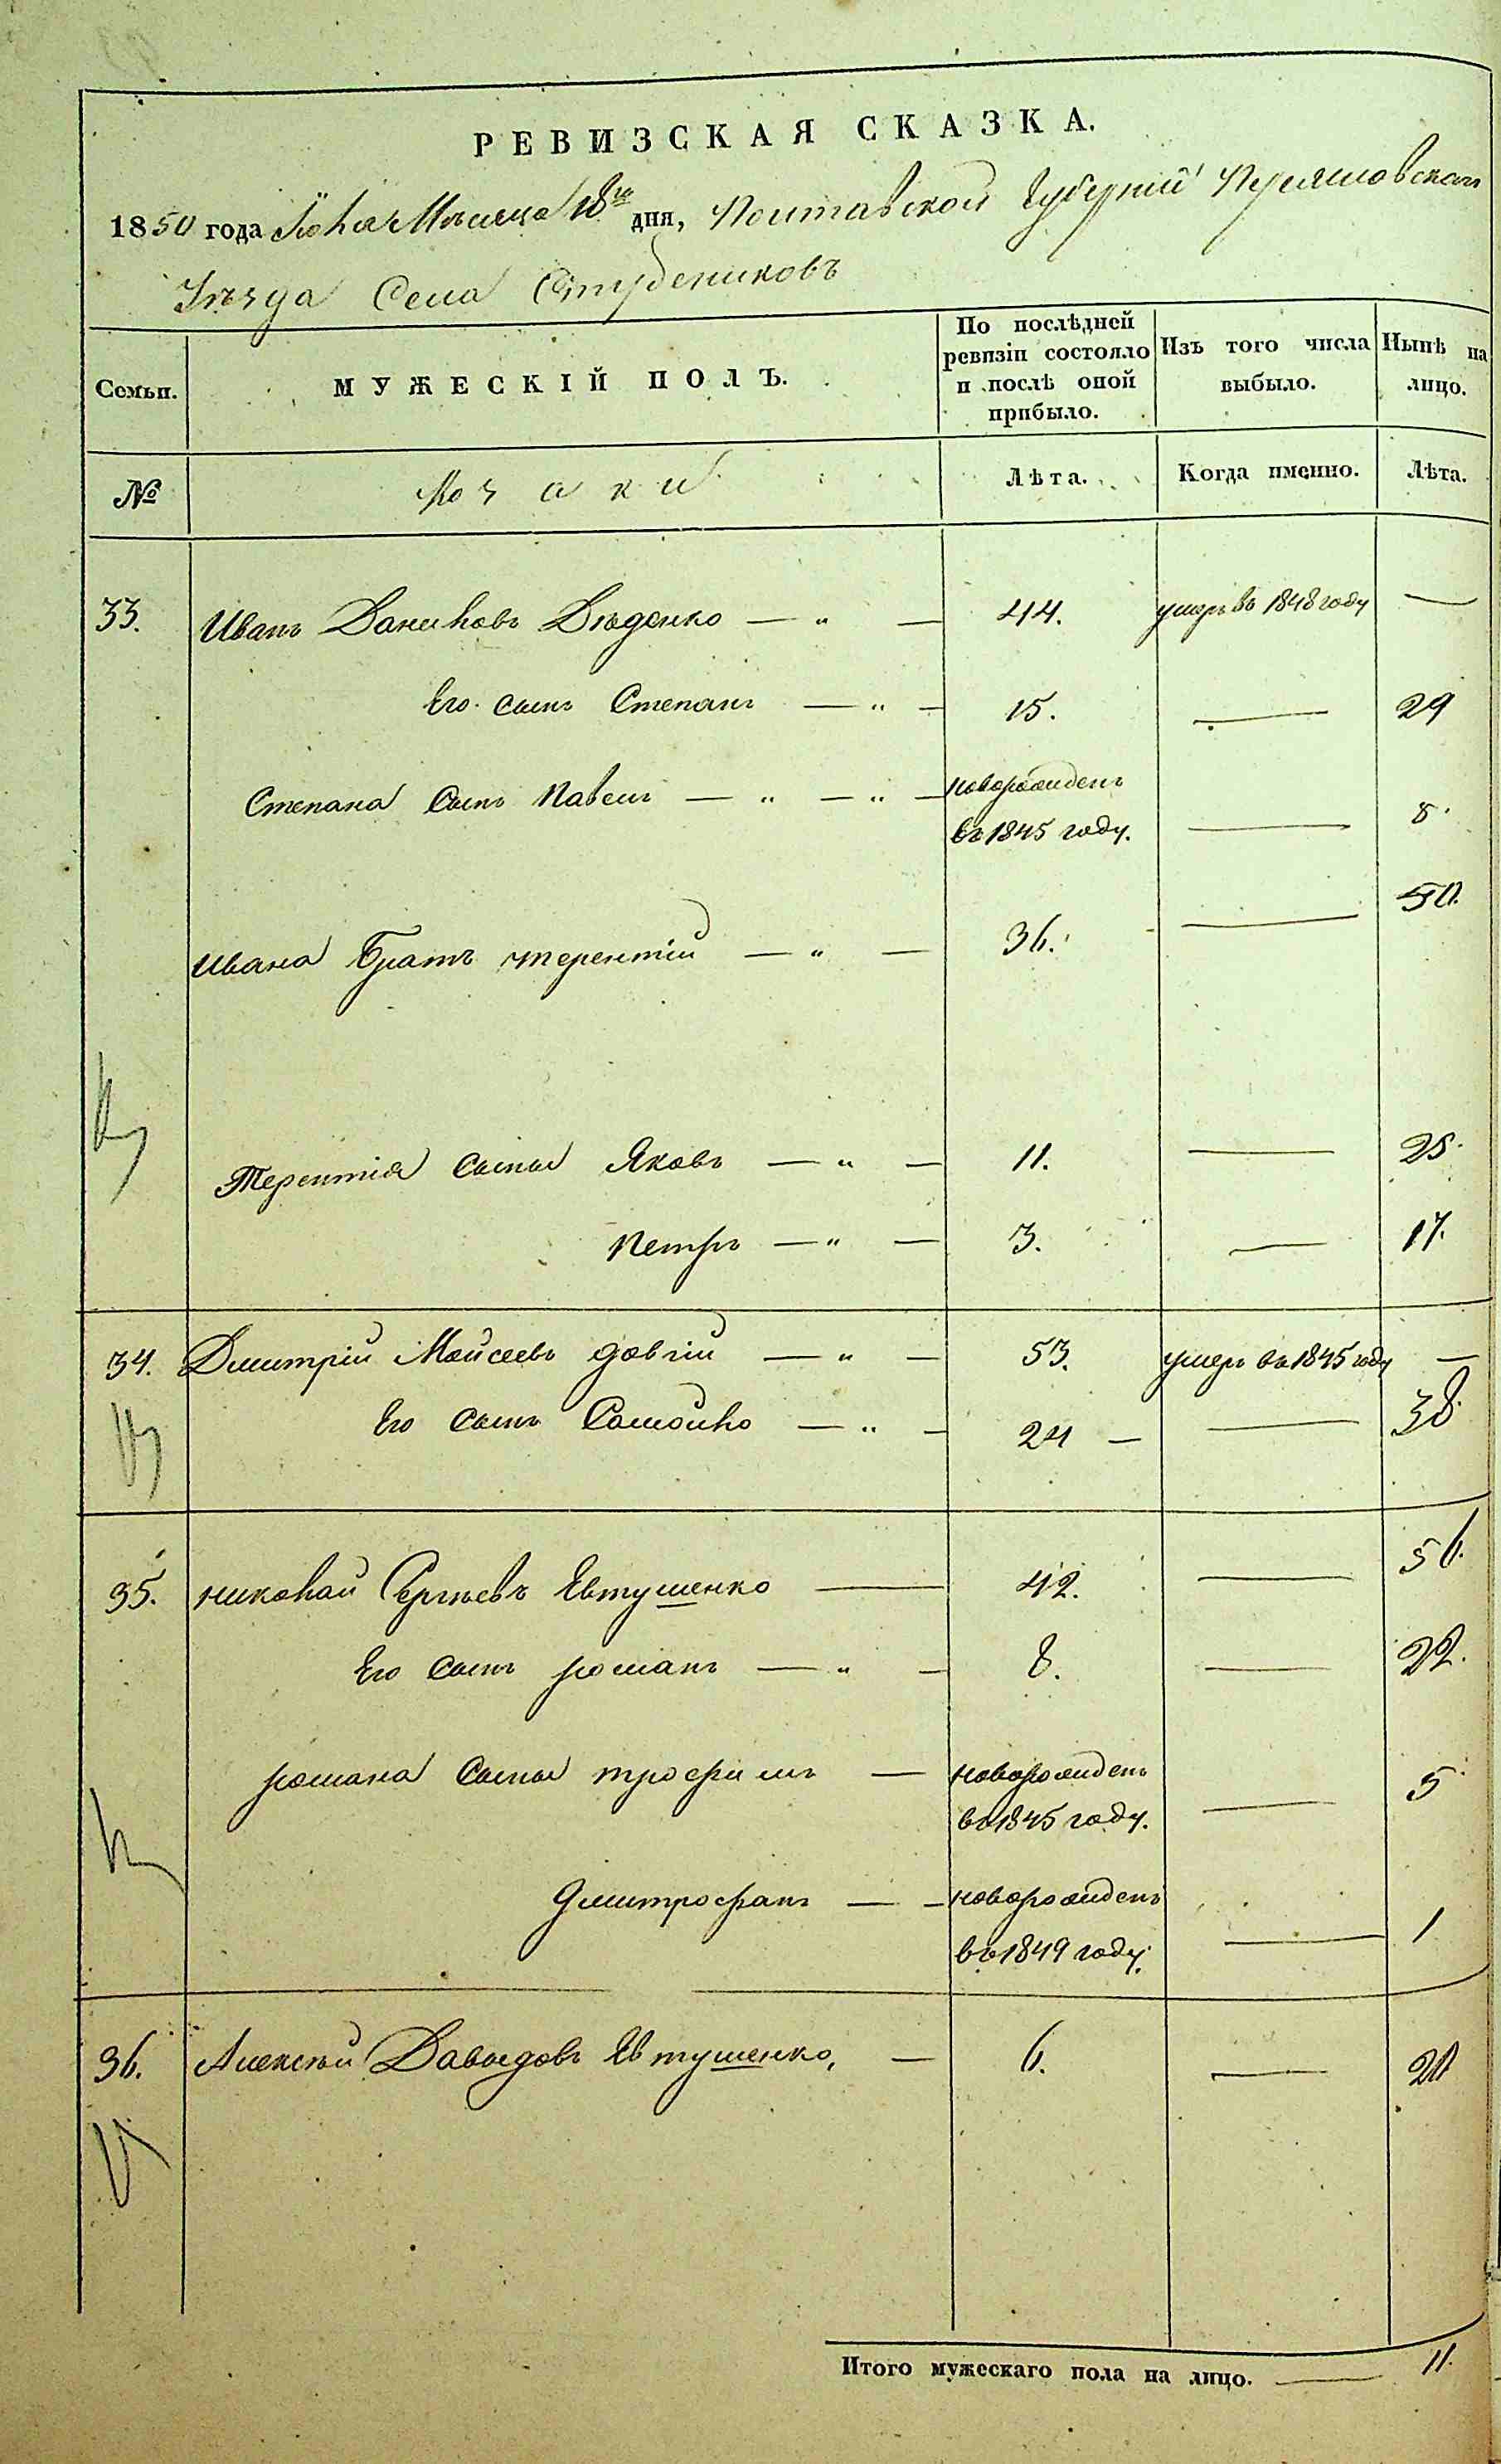 РЕВИЗСКАЯ СКАЗКА.
1850 года Іюля Мѣсяца 18го дня, Полтавской Губерніи Переяславской
Уѣзда Села Студениковъ
Семьи. МУЖЕСКІЙ ПОЛЪ. По послѣдней ревизіи состояло и послѣ оной прибыло. Изъ того числа выбыло. Нынѣ на лицо.
№ Козаки Лѣта. Когда именно. Лѣта.
33. Иванъ Даниловъ Дѣденко — „ — 44. умеръ въ 1848 году —
Его сынъ Степанъ — „ — 15. — 29
Степана сынъ Павелъ — „ — „ — новорожденъ
въ 1845 году. — 5.
Ивана Братъ терентій — „ — 36. — 50.
Терентія сыны Яковъ — „ — 11. — 25.
петръ — „ — 3. — 17.
34. Дмитрій Мойсеевъ довгій — „ — 53. умеръ въ 1845 году —
Его сынъ Самойло — „ — 24 — — 38.
35. николай Сергѣевъ Евтушенко — 42. — 56.
Его сынъ романъ — „ — 8. — 22.
романа сыны трофимъ — новорожденъ
въ 1845 году. — 5
Дмитрофанъ — — новорожденъ
въ 1849 году. — 1
36. Алексѣй Давыдовъ Евтушенко, — 6. — 20
Итого мужескаго пола на лицо. — 11.